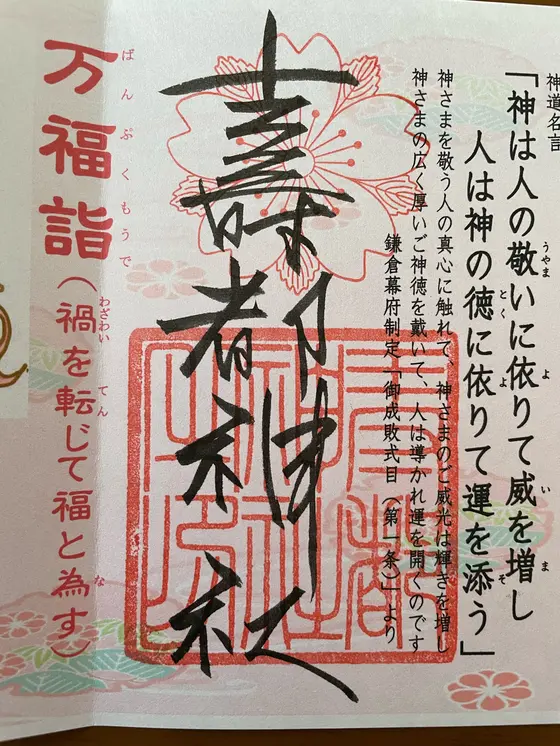 神道名言
「神は人の敬いに依りて威を増し
人は神の徳に依りて運を添う」
神さまを敬う人の真心に触れて、神さまのご威光は輝きを増し
神さまの広く厚いご神徳を戴いて、人は導かれ運を開くのです
鎌倉幕府制定「御成敗式目(第一条)」より
壽都神社
万福詣
ばんぷくもうで
(禍を転じて福と為す)